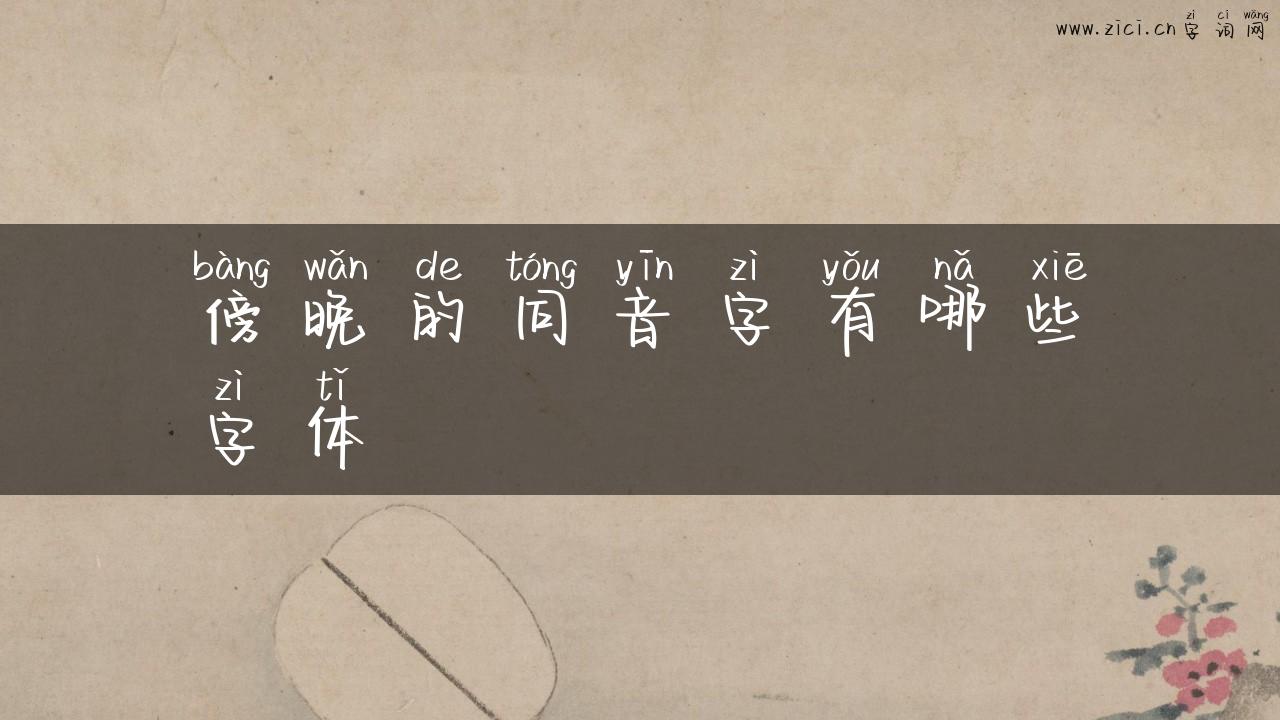 zì cí wǎng
www.zici.cn 字 词 网
bàng wǎn de tóng yīn zì yǒu nǎ xiē
傍 晚 的 同 音 字 有 哪 些
zì tǐ
字 体